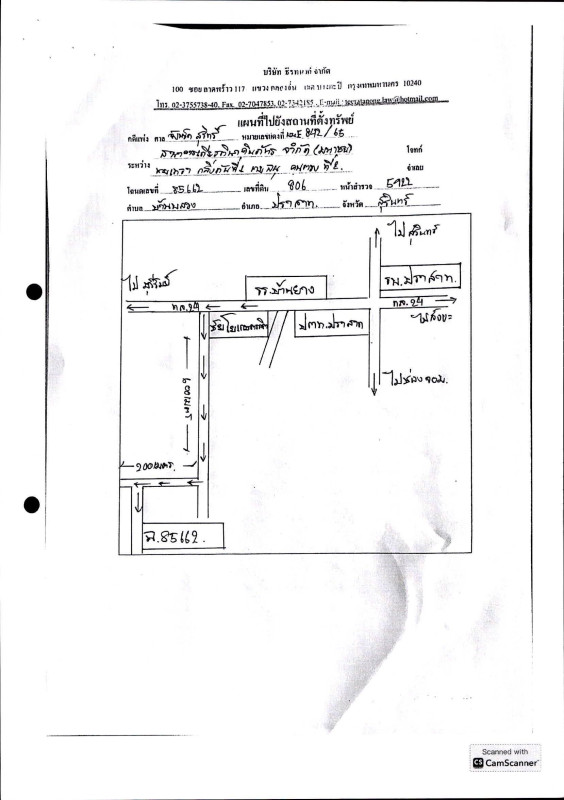 บริษัท ธีรทนงค์ จำกัด
100 ซอยลาดพร้าว 117 แขวงคลองจั่น เขตบางกะปิ กรุงเทพมหานคร 10240
โทร. 02-3755738-40, Fax. 02-7047853, 02-7342195 , E-mail :
แผนที่ไปยังสถานที่ตั้งทรัพย์
คดีแพ่ง ศาล จังหวัด สุรินทร์ หมายเลขแดงที่ ผบE 842/65
ธนาคารเกียรตินาคินภัทร จำกัด (มหาชน) โจทก์
ระหว่าง ที่1 ที่2. จำเลย
โฉนดเลขที่ 85662 เลขที่ดิน 806 หน้าสำรวจ 5922
ตำบล บ้านพลวง อำเภอ ปราสาท. จังหวัด สุรินทร์
ไป สุรินทร์
ไป บุรีรัมย์
รร.บ้านยาง
รพ.ปราสาท.
ทล.24
ทล.24
ไปสังขะ
ปตท.ปราสาท
ไปช่องจอม.
600เมตร
100เมตร.
ฉ.85662.
Scanned with
CS CamScanner